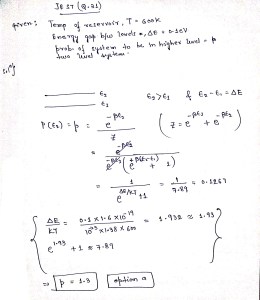 JEST (Q.21)
given: Temp of reservoir, T = 600K
Energy gap b/w levels, ΔE = 0.1eV
prob. of system to be in higher level = p
two level system.
Solⁿ/
ε₂ ε₂>ε₁ & ε₂-ε₁ = ΔE
ε₁
P(ε₂) = p = e^-βε₂ / Z (Z = e^-βε₁ + e^-βε₂)
= e^-βε₂ / e^-βε₂ (e^+β(ε₂-ε₁) + 1)
= 1 / e^ΔE/KT +1 = 1 / 7.89 = 0.1267
{ ΔE / KT = 0.1 × 1.6 × 10^-19 / 10^-23 × 1.38 × 600 = 1.932 ≈ 1.93
e^1.93 + 1 ≈ 7.89 }
⇒ p = 1.3 option a